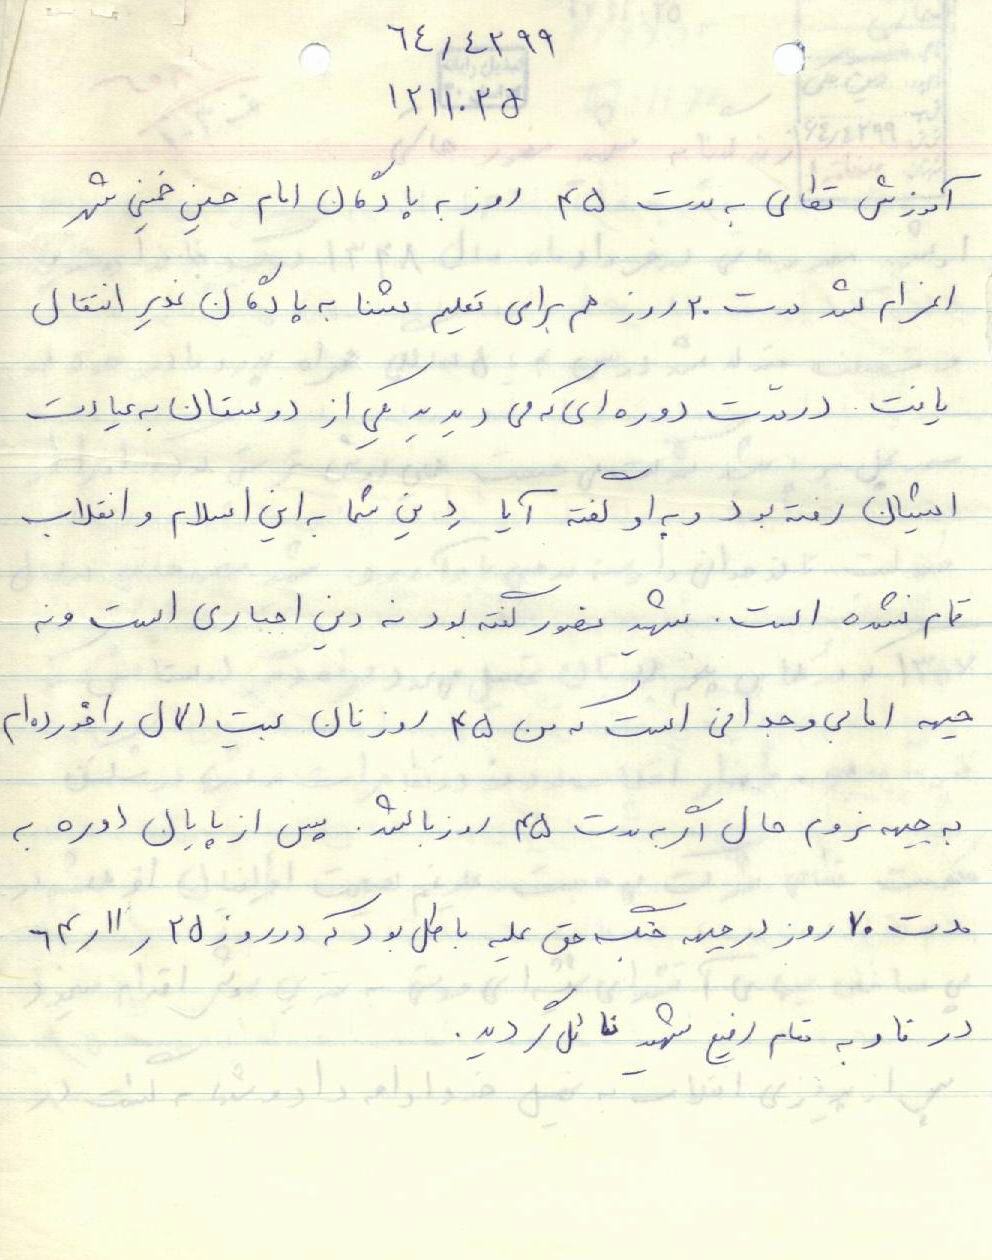 ٦٤/٤٢٩٩
١٢١١٠٢٥
آموزش نظامی به مدت ۴۵ روز به پادگان امام حسین خمینی شهر
اعزام شد مدت ۲۰ روز هم برای تعلیم شنا به پادگان غدیر انتقال
یافت. در مدت دوره ای که می دیدید یکی از دوستان به عیادت
ایشان رفته بود و به او گفته آیا دین شما به این اسلام و انقلاب
تمام نشده است. شهید غفور گفته بود نه دین اجباری است و نه
جبهه اما بی وجدانی است که من ۴۵ روز نان بیت المال را خورده ام
به جبهه نروم حال اگر به مدت ۴۵ روز باشد. پس از پایان دوره به
مدت ۷۰ روز در جبهه جنگ حق علیه باطل بود که در روز ۶۴/۱۱/۲۵
در فاو به مقام رفیع شهید نائل گردید.